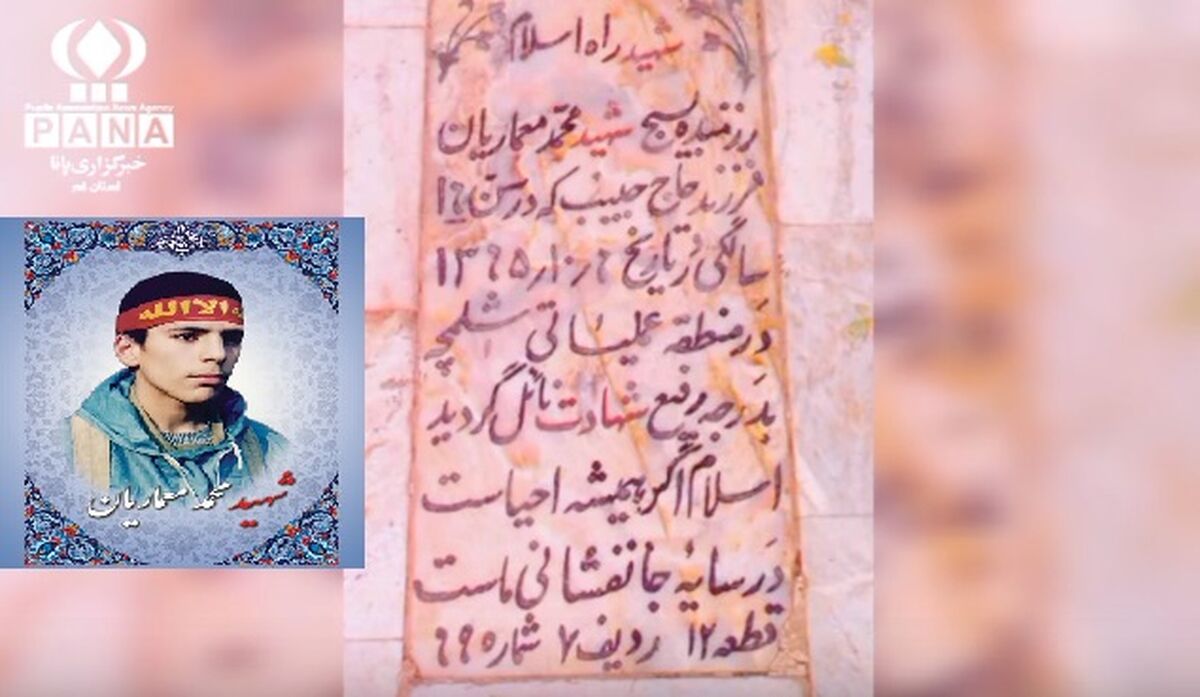 Pupils Association News Agency
PANA
خبرگزاری پانا
استان قم
الا الله
شهید محمد معماریان
شهید راه اسلام
رزمنده بسیج شهید محمد معماریان
فرزند حاج حبیب که در سن ۱۶
سالگی در تاریخ ۶ر۱۰ر۱۳۶۵
در منطقه عملیاتی شلمچه
بدرجه رفیع شهادت نائل گردید
اسلام اگر همیشه احیاست
در سایه جانفشانی ماست
قطعه ۱۲ ردیف ۷ شماره